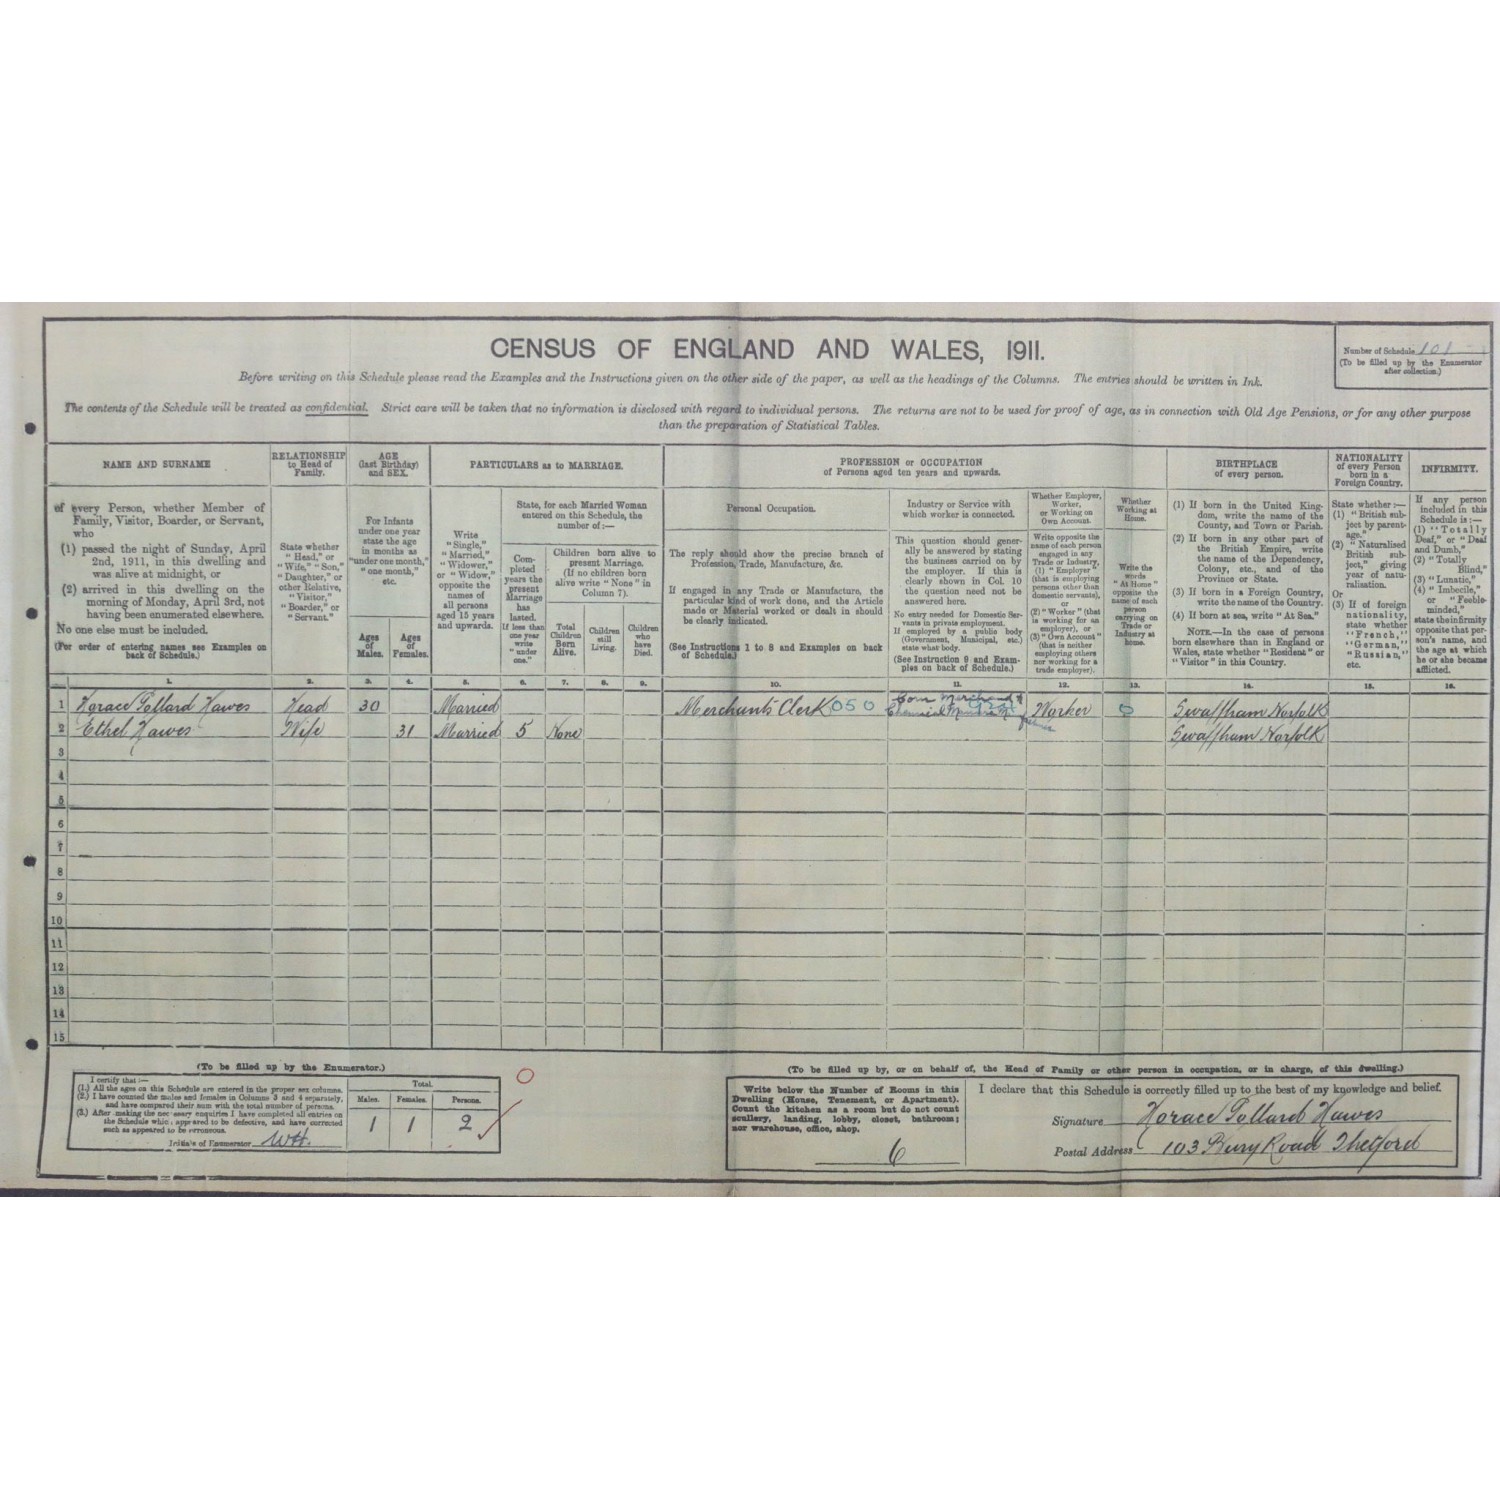 CENSUS OF ENGLAND AND WALES, 1911.
Number of Schedule 101
(To be filled up by the Enumerator
after collection.)
Before writing on this Schedule please read the Examples and the Instructions given on the other side of the paper, as well as the headings of the Columns. The entries should be written in Ink.
The contents of the Schedule will be treated as confidential. Strict care will be taken that no information is disclosed with regard to individual persons. The returns are not to be used for proof of age, as in connection with Old Age Pensions, or for any other purpose
than the preparation of Statistical Tables.
NAME AND SURNAME
of every Person, whether Member of
Family, Visitor, Boarder, or Servant,
who
(1) passed the night of Sunday, April
2nd, 1911, in this dwelling and
was alive at midnight, or
(2) arrived in this dwelling on the
morning of Monday, April 3rd, not
having been enumerated elsewhere.
No one else must be included.
(For order of entering names see Examples on
back of Schedule.)
RELATIONSHIP
to Head of
Family.
State whether
"Head," or
"Wife," "Son,"
"Daughter," or
other Relative,
"Visitor,"
"Boarder," or
"Servant."
AGE
(last Birthday)
and SEX.
For Infants
under one year
state the age
in months as
"under one month,"
"one month,"
etc.
Ages
of
Males.
Ages
of
Females.
PARTICULARS as to MARRIAGE.
Write
"Single,"
"Married,"
"Widower,"
or "Widow,"
opposite the
names of
all persons
aged 15 years
and upwards.
State, for each Married Woman
entered on this Schedule, the
number of:—
Com-
pleted
years the
present
Marriage
has
lasted.
If less than
one year
write
"under
one."
Children born alive to
present Marriage.
(If no children born
alive write "None" in
Column 7).
Total
Children
Born
Alive.
Children
still
Living.
Children
who
have
Died.
PROFESSION or OCCUPATION
of Persons aged ten years and upwards.
Personal Occupation.
The reply should show the precise branch of
Profession, Trade, Manufacture, &c.
If engaged in any Trade or Manufacture, the
particular kind of work done, and the Article
made or Material worked or dealt in should
be clearly indicated.
(See Instructions 1 to 8 and Examples on back
of Schedule.)
Industry or Service with
which worker is connected.
This question should gener-
ally be answered by stating
the business carried on by
the employer. If this is
clearly shown in Col. 10
the question need not be
answered here.
No entry needed for Domestic Ser-
vants in private employment.
If employed by a public body
(Government, Municipal, etc.)
state what body.
(See Instruction 9 and Exam-
ples on back of Schedule.)
Whether Employer,
Worker,
or Working on
Own Account.
Write opposite the
name of each person
engaged in any
Trade or Industry,
(1) "Employer"
(that is employing
persons other than
domestic servants),
or
(2) "Worker" (that
is working for an
employer), or
(3) "Own Account"
(that is neither
employing others
nor working for a
trade employer).
Whether
Working at
Home.
Write the
words
"At Home"
opposite the
name of each
person
carrying on
Trade or
Industry at
home.
BIRTHPLACE
of every person.
(1) If born in the United King-
dom, write the name of the
County, and Town or Parish.
(2) If born in any other part of
the British Empire, write
the name of the Dependency,
Colony, etc., and of the
Province or State.
(3) If born in a Foreign Country,
write the name of the Country.
(4) If born at sea, write "At Sea."
NOTE.—In the case of persons
born elsewhere than in England or
Wales, state whether "Resident" or
"Visitor" in this Country.
NATIONALITY
of every Person
born in a
Foreign Country.
State whether:—
(1) "British sub-
ject by parent-
age."
(2) "Naturalised
British sub-
ject," giving
year of natu-
ralisation.
Or
(3) If of foreign
nationality,
state whether
"French,"
"German,"
"Russian,"
etc.
INFIRMITY.
If any person
included in this
Schedule is:—
(1) "Totally
Deaf," or "Deaf
and Dumb,"
(2) "Totally
Blind,"
(3) "Lunatic,"
(4) "Imbecile,"
or "Feeble-
minded,"
state the infirmity
opposite that per-
son's name, and
the age at which
he or she became
afflicted.
1. 2. 3. 4. 5. 6. 7. 8. 9. 10. 11. 12. 13. 14. 15. 16.
1 Horace Pollard Hawes Head 30 Married Merchants Clerk 050 Corn Merchant & Chemical Manure Worker 0 Swaffham Norfolk
2 Ethel Hawes Wife 31 Married 5 None Swaffham Norfolk
3
4
5
6
7
8
9
10
11
12
13
14
15
(To be filled up by the Enumerator.)
I certify that:—
(1.) All the ages on this Schedule are entered in the proper sex columns.
(2.) I have counted the males and females in Columns 3 and 4 separately,
and have compared their sum with the total number of persons.
(3.) After making the necessary enquiries I have completed all entries on
the Schedule which appeared to be defective, and have corrected
such as appeared to be erroneous.
Initials of Enumerator WH.
Total.
Males. Females. Persons.
1 1 2
0
(To be filled up by, or on behalf of, the Head of Family or other person in occupation, or in charge, of this dwelling.)
Write below the Number of Rooms in this
Dwelling (House, Tenement, or Apartment).
Count the kitchen as a room but do not count
scullery, landing, lobby, closet, bathroom;
nor warehouse, office, shop.
6
I declare that this Schedule is correctly filled up to the best of my knowledge and belief.
Signature Horace Pollard Hawes
Postal Address 103 Bury Road Thetford